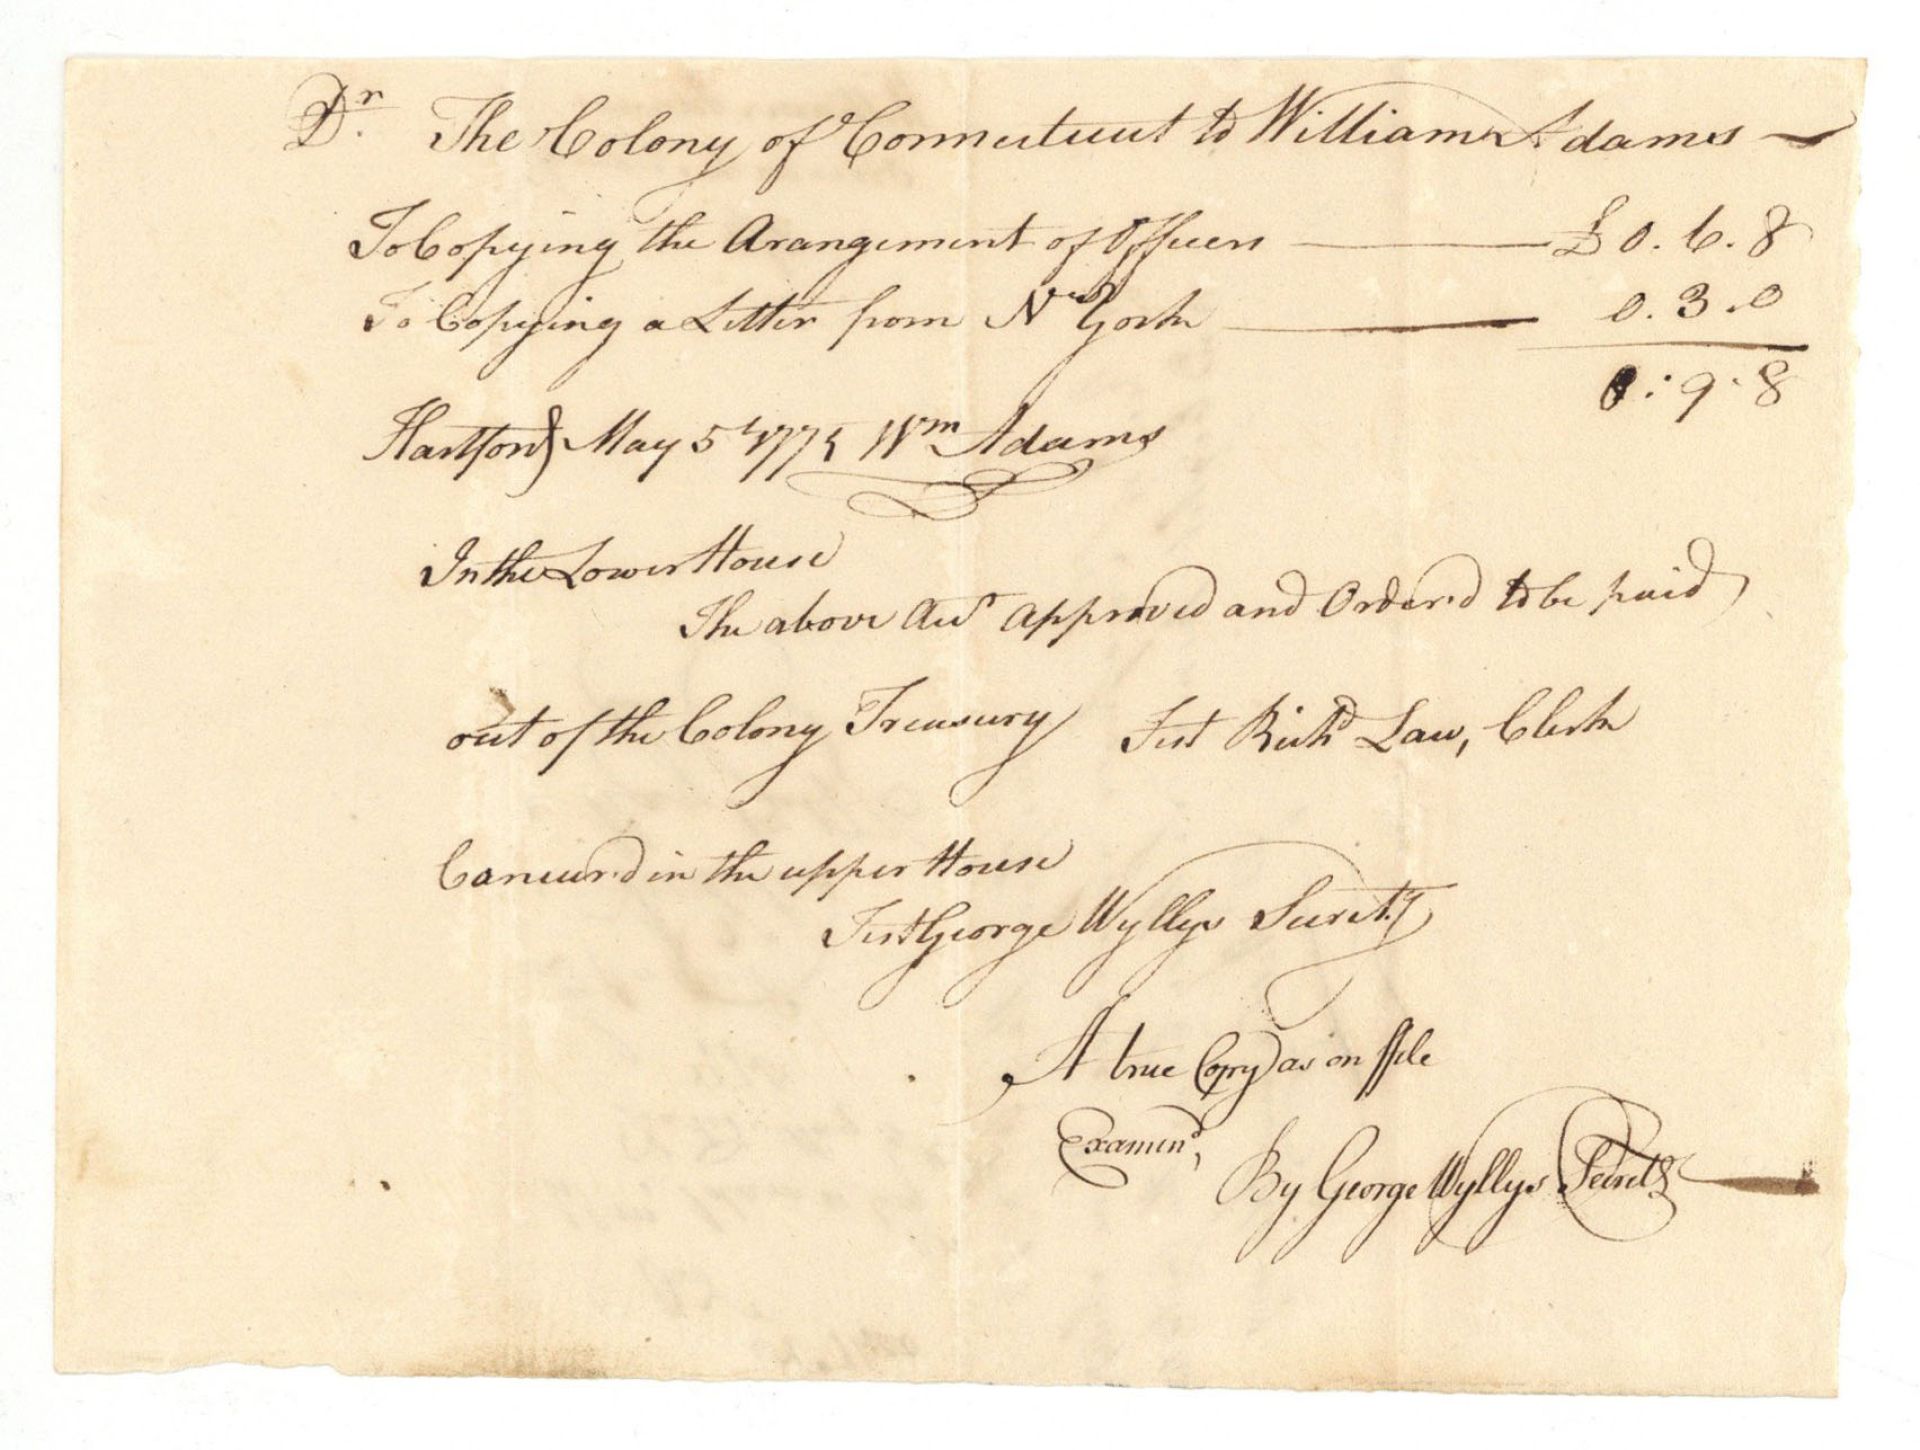 Dr. The Colony of Connecticut to William Adams
To Copying the Arangement of Officers £0.6.8
To Copying a Letter from New York 0.3.0
0:9:8
Hartford May 5t 1775 Wm Adams
In the Lower House
The above Acct approved and Order'd to be paid
out of the Colony Treasury Test Richd Law, Clerk
Concurd in the upper House
Test George Wyllys Secrety
A true Copy as on ffile
Examind,
By George Wyllys Secrety